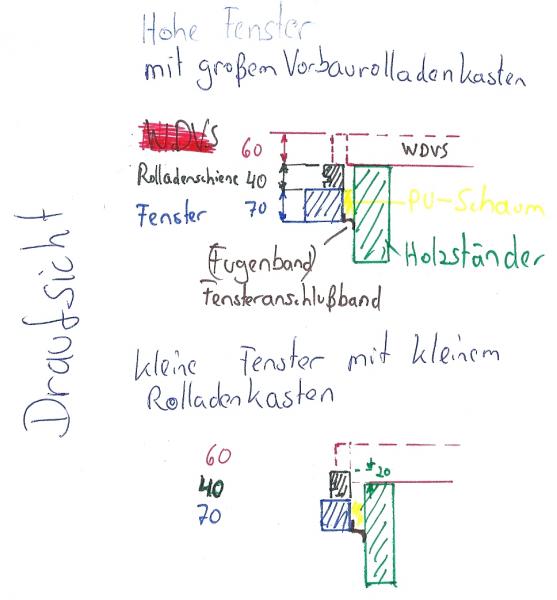 Hohe Fenster
mit großem Vorbaurolladenkasten
WDVS
60
WDVS
Rolladenschiene 40
Fenster 70
PU-Schaum
(Fugenband)
Holzständer
Fensteranschlußband
Draufsicht
kleine Fenster mit kleinem
Rolladenkasten
60
40
70
20